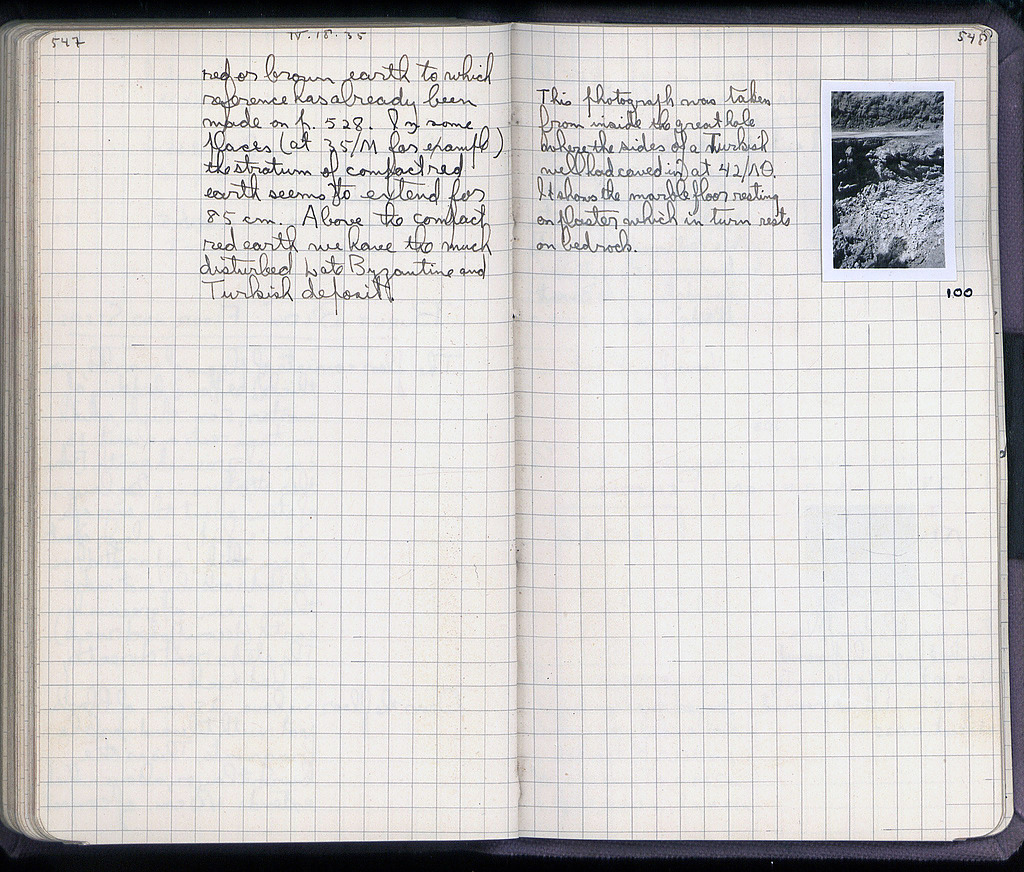 547
IV.18.35
red or brown earth to which
reference has already been
made on p. 528. In some
places (at 35/M for example)
the stratum of compact red
earth seems to extend for
85 cm. Above the compact
red earth we have the much
disturbed Late Byzantine and
Turkish deposit.
548
This photograph was taken
from inside the great hole
where the sides of a Turkish
well had caved in at 42/ΛΘ.
It shows the marble floor resting
on plaster which in turn rests
on bedrock.
100